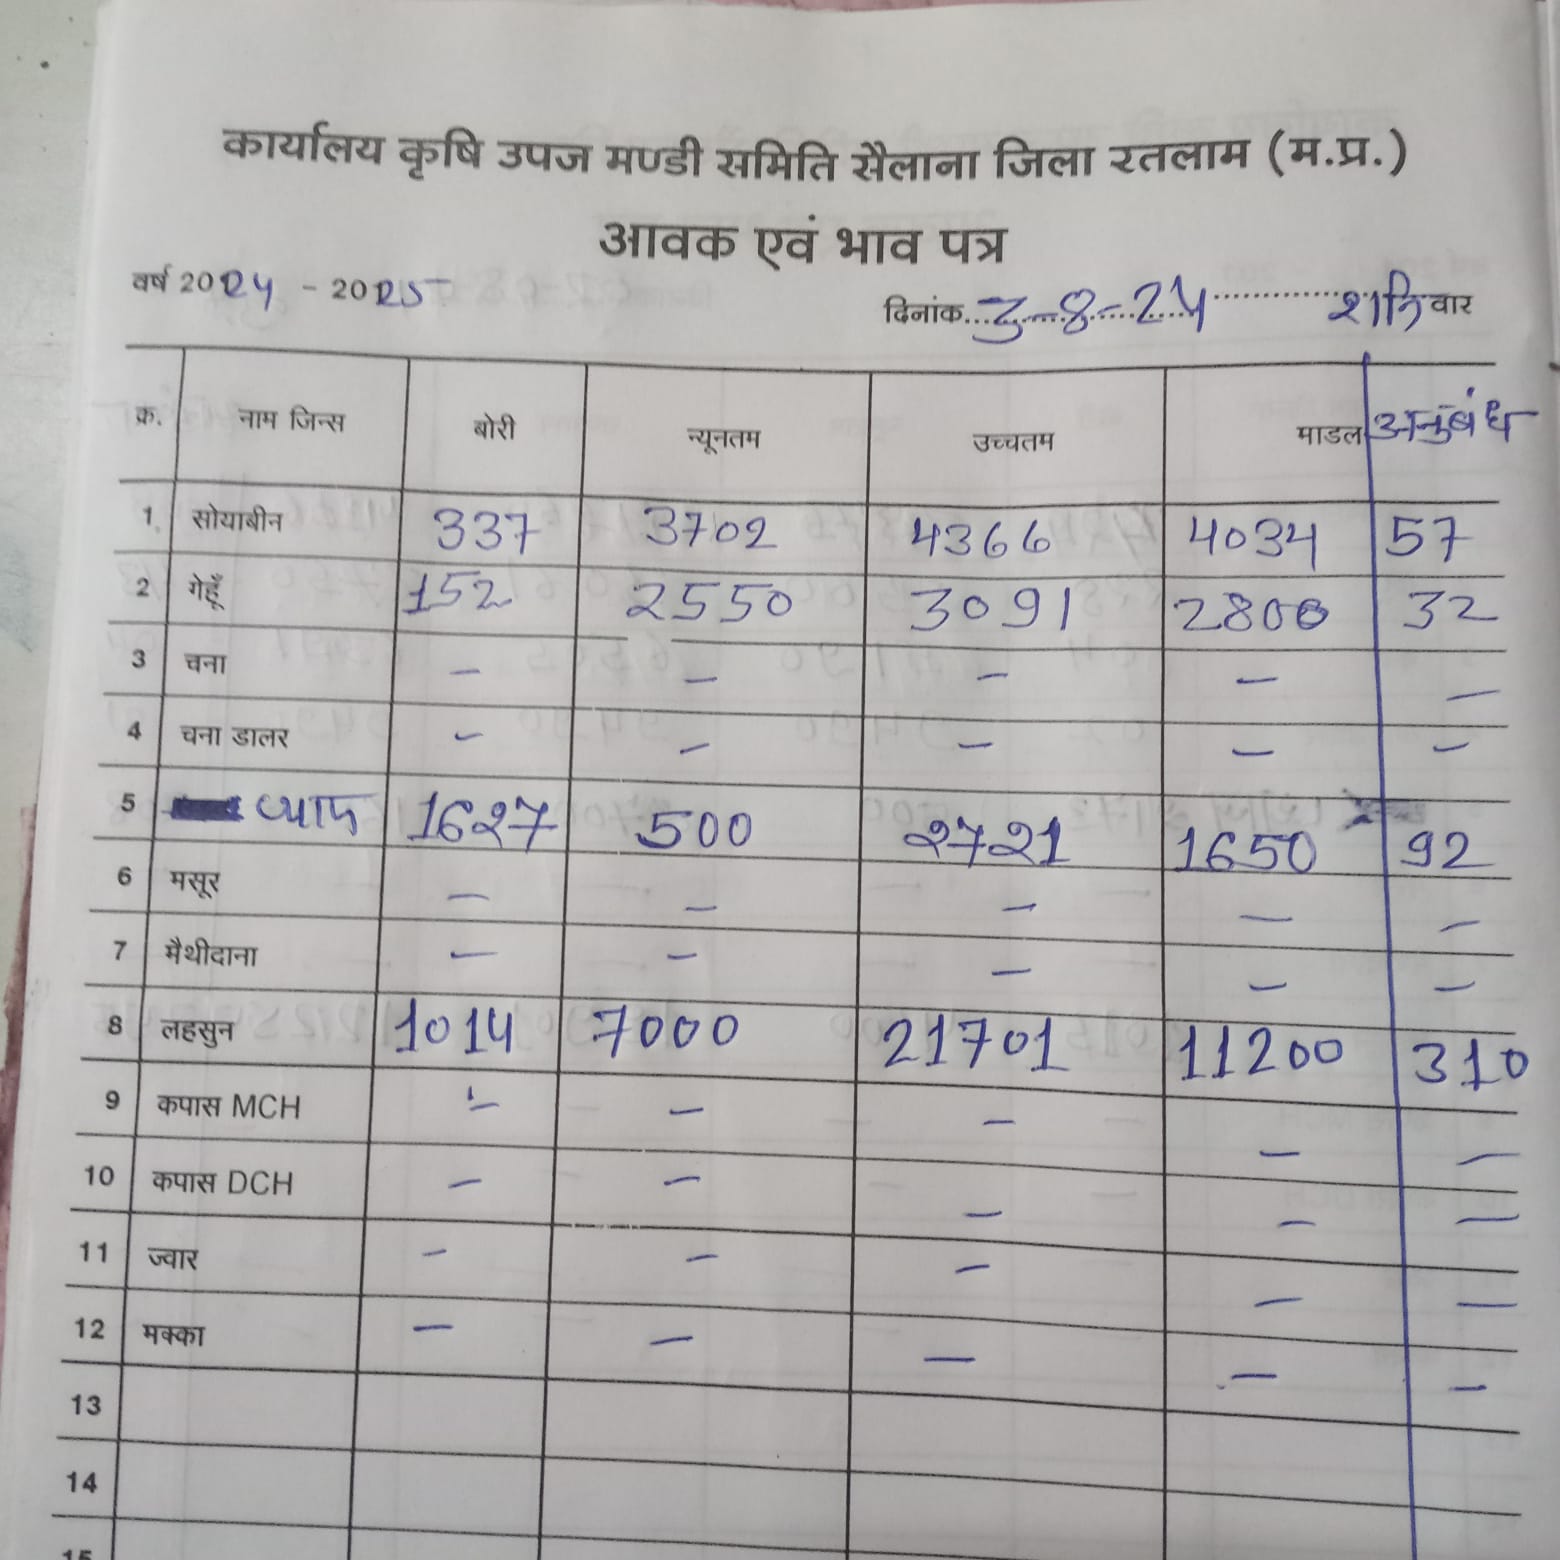 कार्यालय कृषि उपज मण्डी समिति सैलाना जिला रतलाम (म.प्र.)
आवक एवं भाव पत्र
वर्ष 2024 - 2025
दिनांक...3-8-24............... शनि वार
क्र. नाम जिन्स बोरी न्यूनतम उच्चतम माडल अनुबंध
1. सोयाबीन 337 3702 4366 4034 57
2 गेहूँ 152 2550 3091 2800 32
3 चना - - - - -
4 चना डालर - - - - -
5 प्याज 1627 500 2721 1650 92
6 मसूर - - - - -
7 मैथीदाना - - - - -
8 लहसुन 1014 7000 21701 11200 310
9 कपास MCH - - - - -
10 कपास DCH - - - - -
11 ज्वार - - - - -
12 मक्का - - - - -
13
14
15